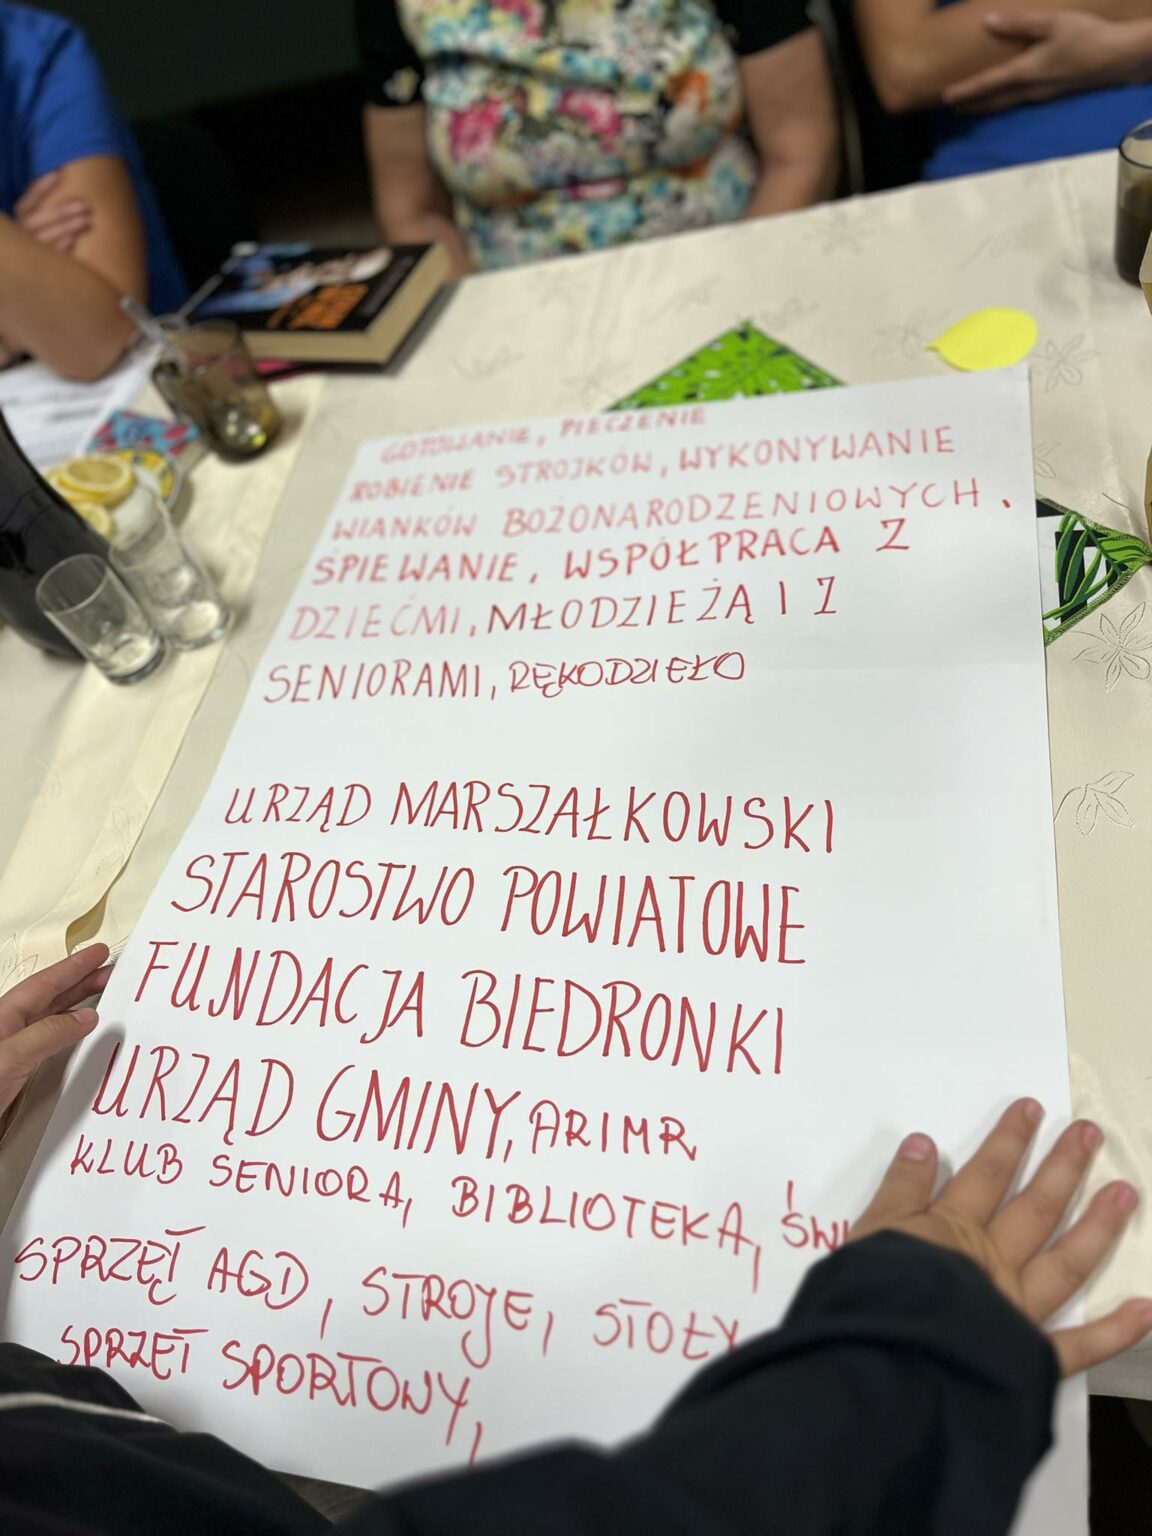 GOTOWANIE, PIECZENIE
ROBIENIE STROJKÓW, WYKONYWANIE
WIANKÓW BOŻONARODZENIOWYCH.
ŚPIEWANIE, WSPÓŁPRACA Z
DZIEĆMI, MŁODZIEŻĄ I Z
SENIORAMI, RĘKODZIEŁO
URZĄD MARSZAŁKOWSKI
STAROSTWO POWIATOWE
FUNDACJA BIEDRONKI
URZĄD GMINY, ARIMR
KLUB SENIORA, BIBLIOTEKA,
SPRZĘT AGD, STROJE, STOŁY
SPRZĘT SPORTOWY,